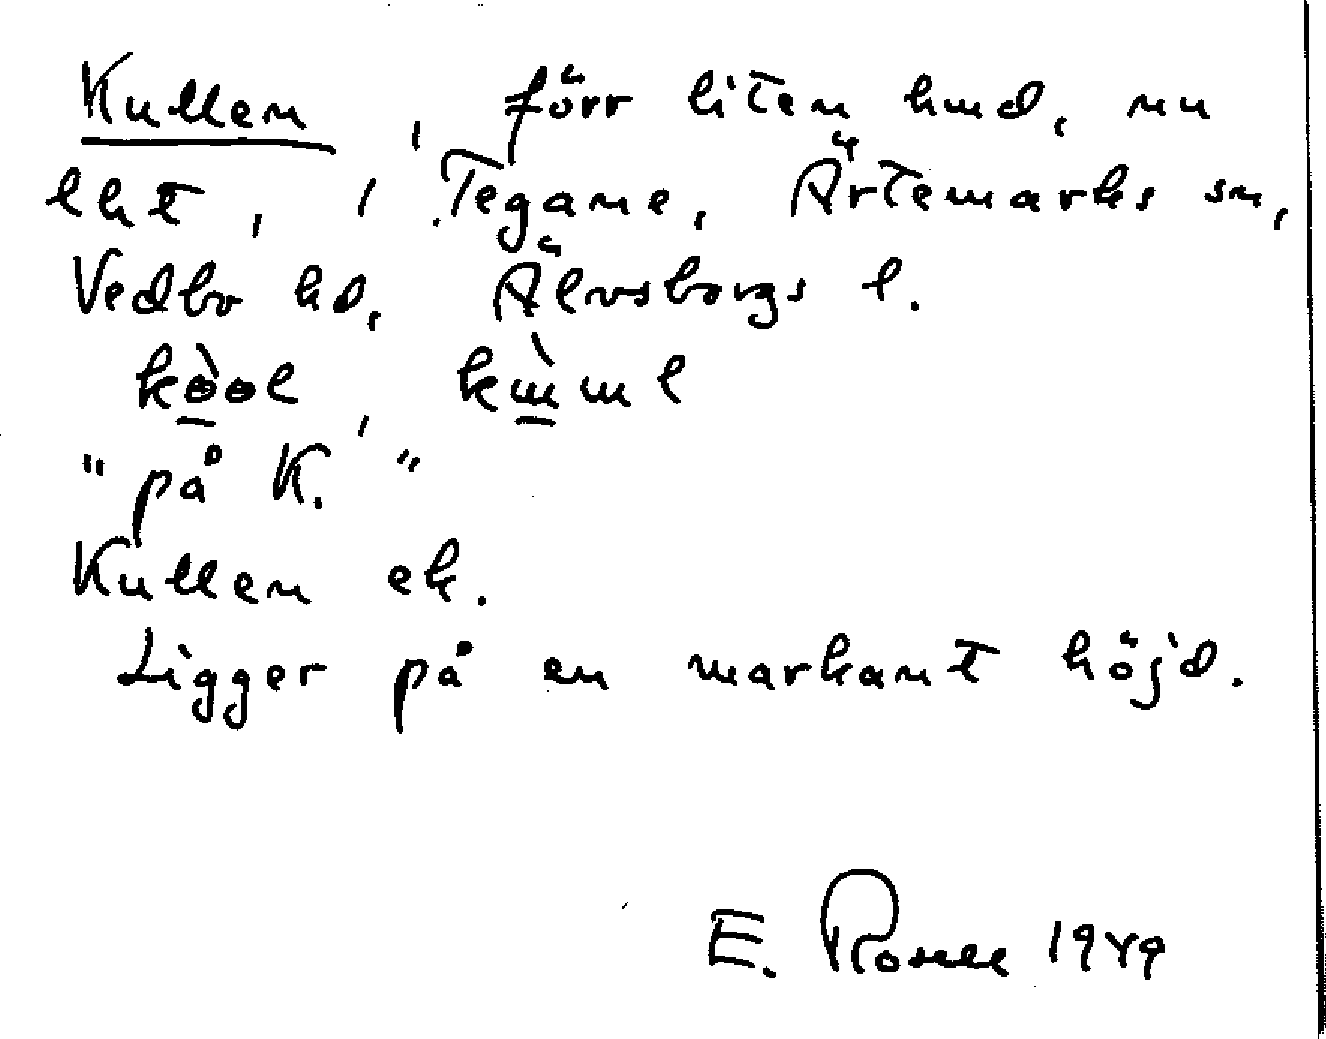 Kullen, förr liten hmd, nu
lht, i Tegane, Ärtemarks sn,
Vedbo hd, Älvsborgs l.
"på K."
Kullen ek.
Ligger på en markant höjd.
E. Rosell 1949